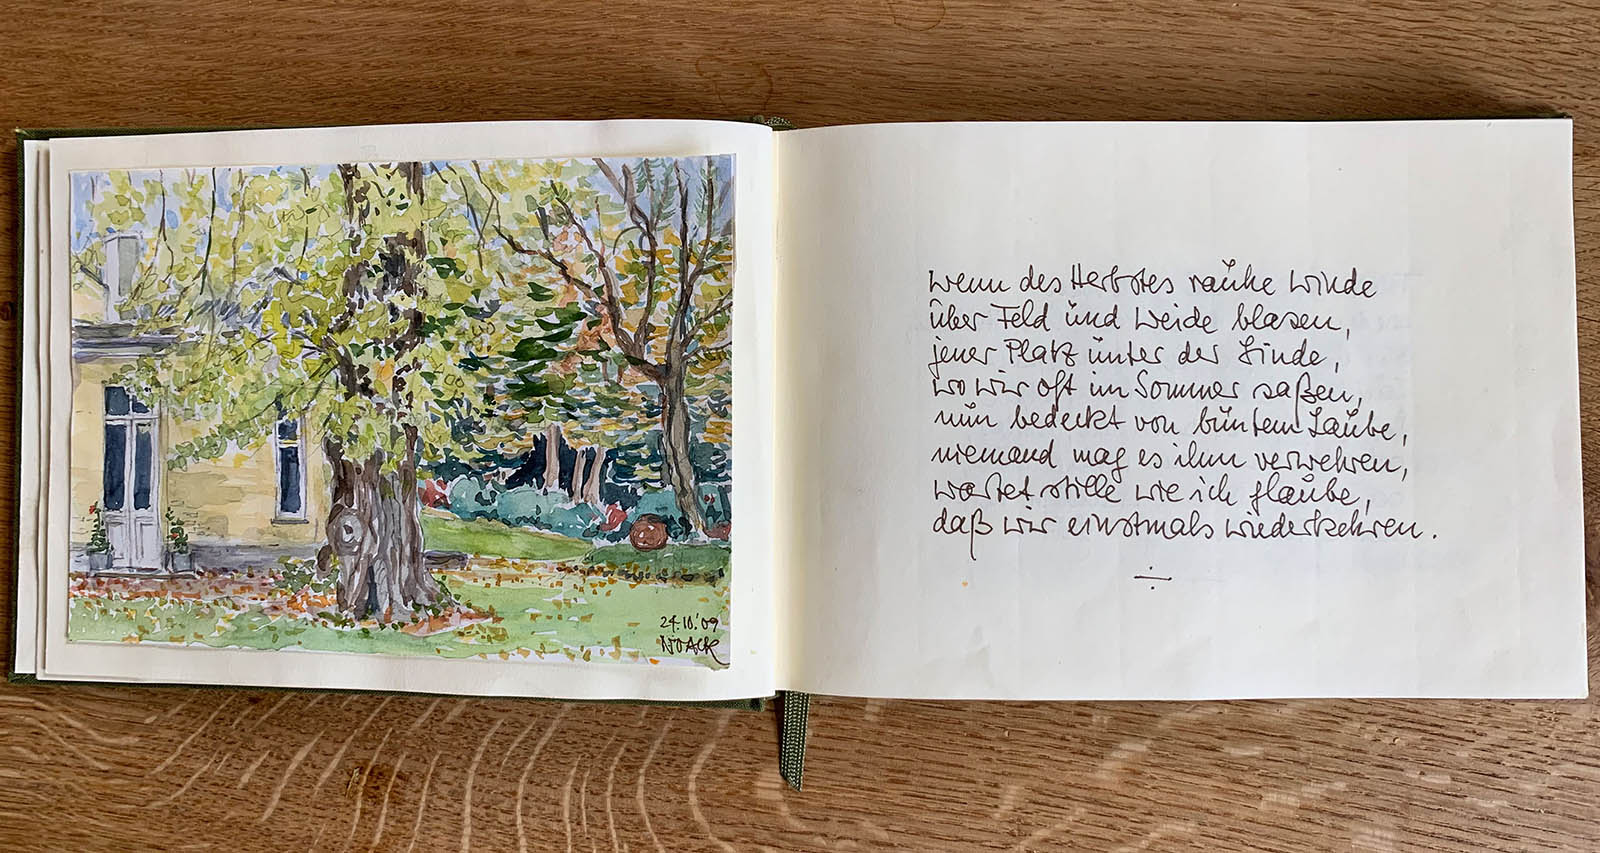 24.10.'09
NOACK
Wenn des Herbstes rauhe Winde
über Feld und Weide blasen,
jener Platz unter der Linde,
wo wir oft im Sommer saßen,
nun bedeckt von buntem Laube,
niemand mag es ihm verwehren,
wartet stille wie ich glaube,
daß wir einstmals wiederkehren.